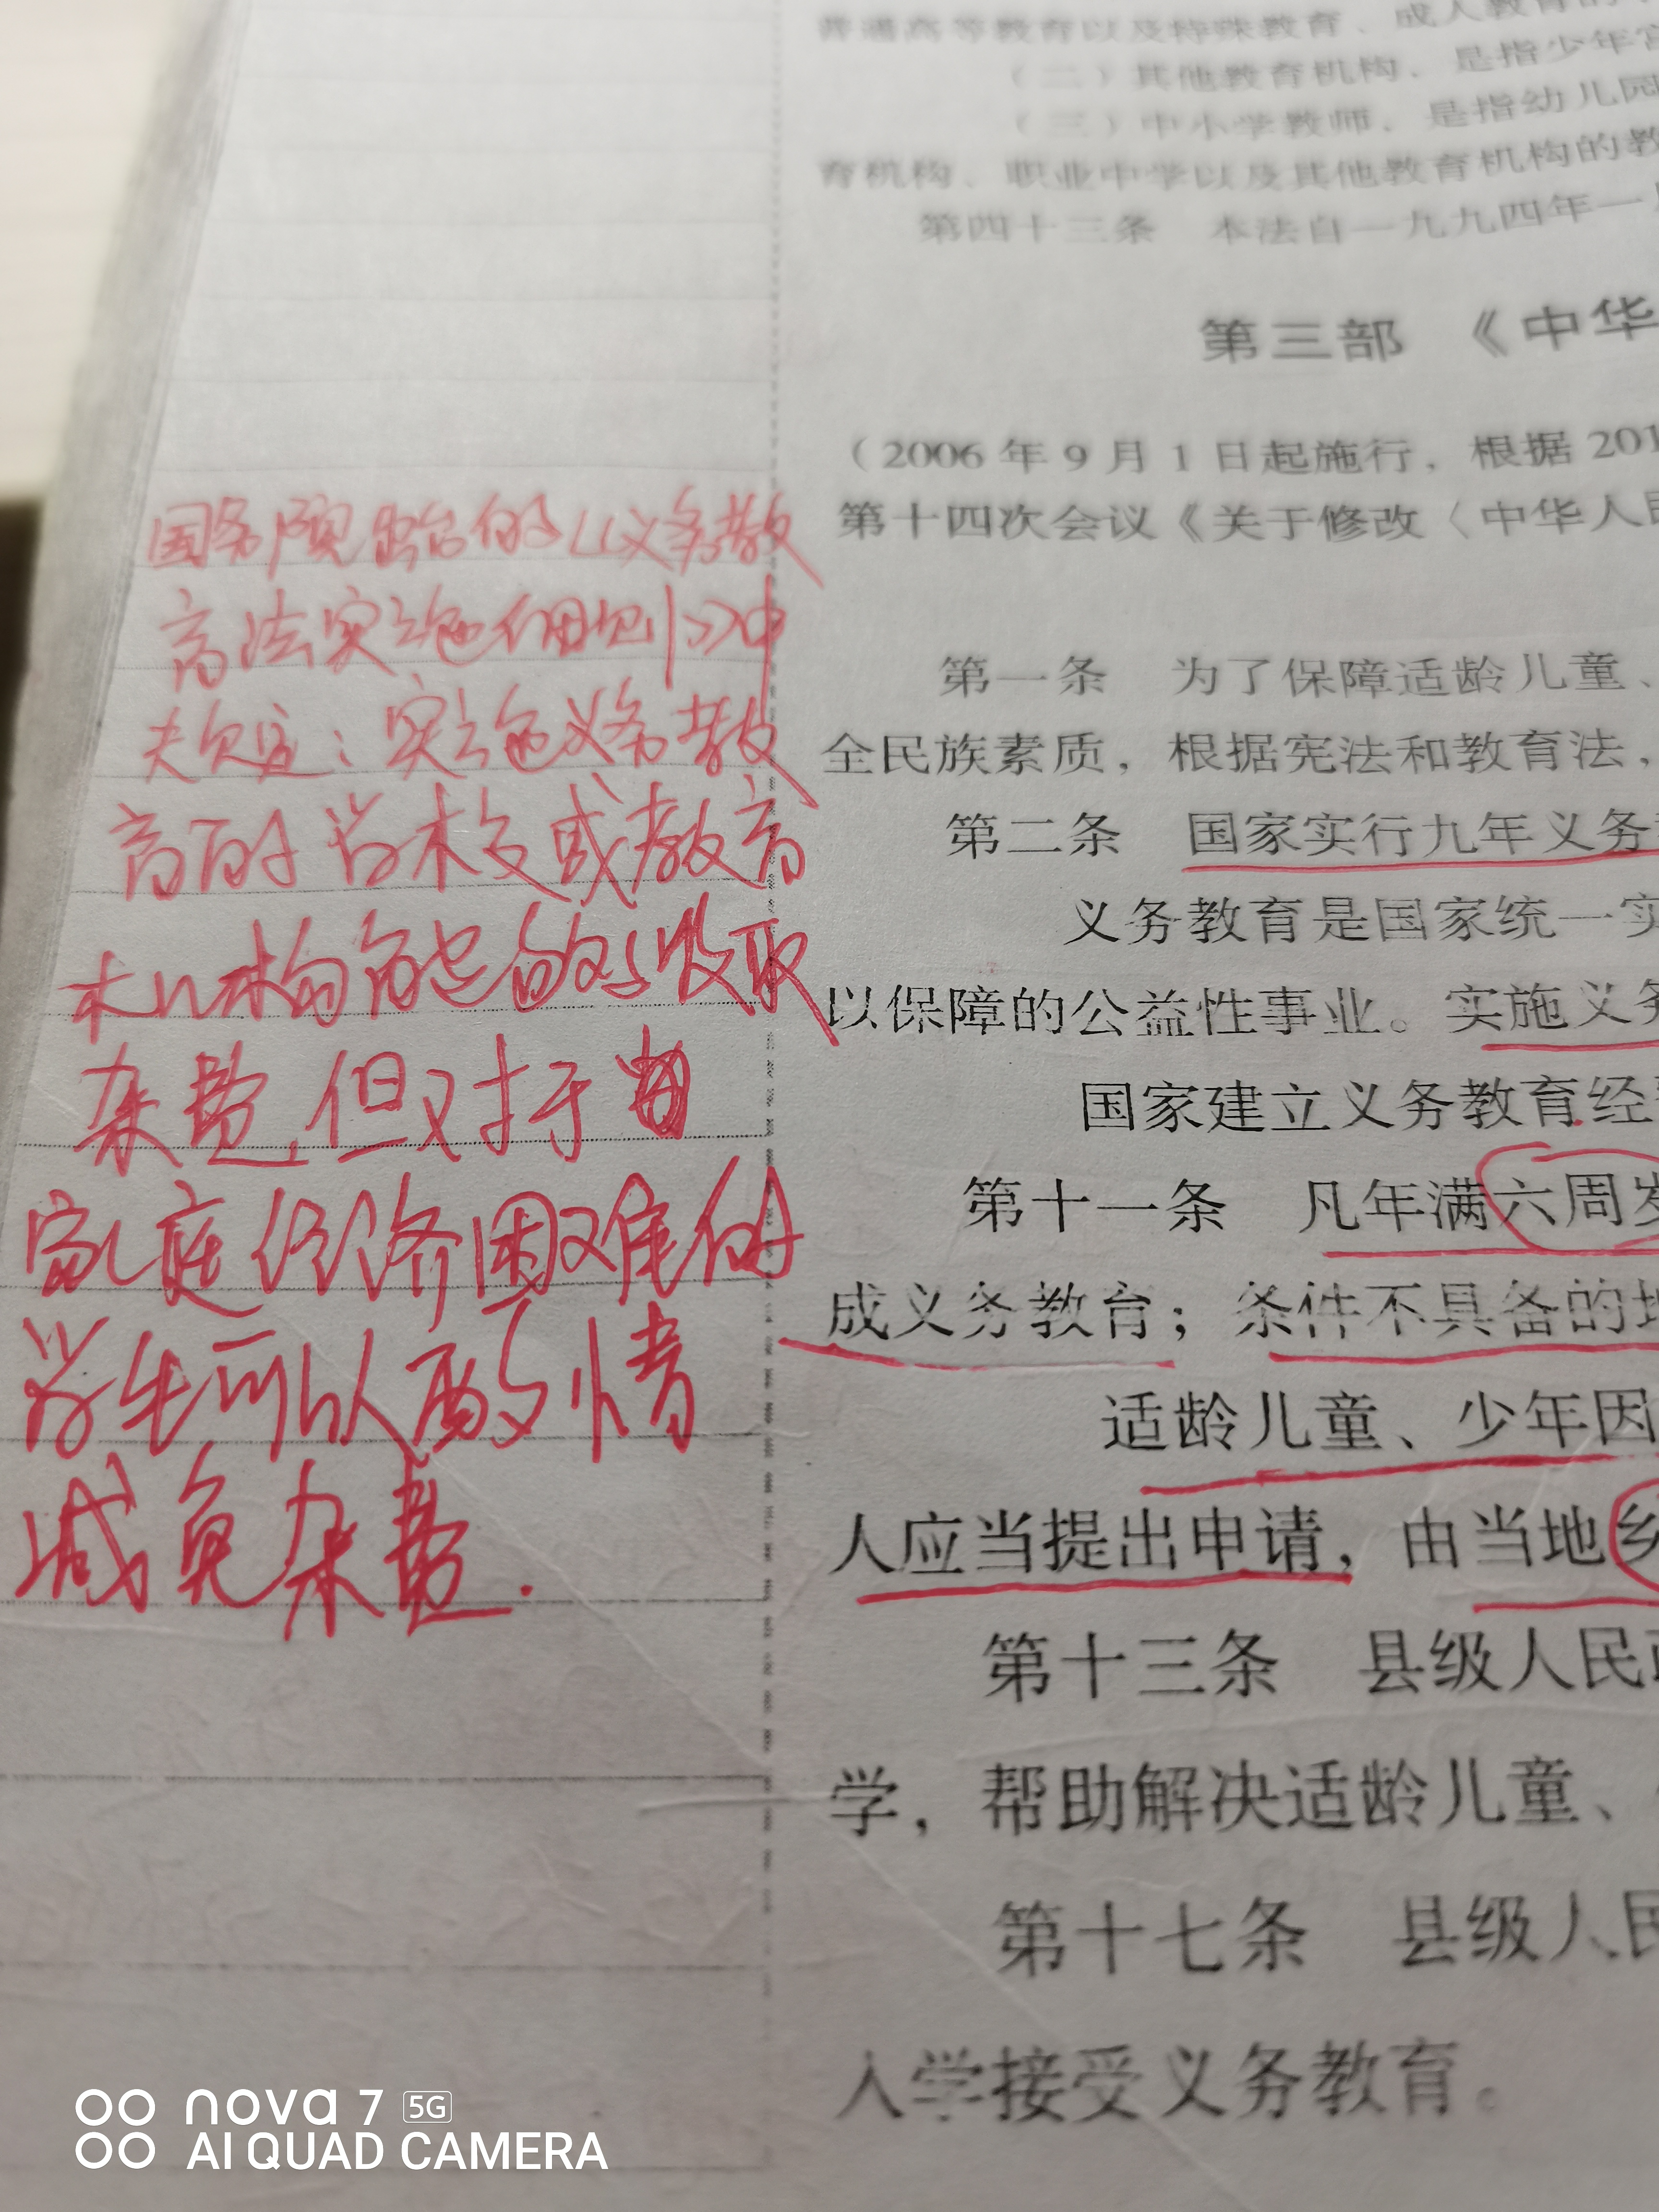 普通高等教育以及特殊教育、成人教育的
（二）其他教育机构，是指少年宫
（三）中小学教师，是指幼儿园
育机构、职业中学以及其他教育机构的教
第四十三条 本法自一九九四年一月
第三部 《中华
（2006 年 9 月 1 日起施行，根据 201
第十四次会议《关于修改〈中华人民
第一条 为了保障适龄儿童、
全民族素质，根据宪法和教育法，
第二条 国家实行九年义务
义务教育是国家统一实
以保障的公益性事业。实施义务
国家建立义务教育经
第十一条 凡年满六周岁
成义务教育；条件不具备的地
适龄儿童、少年因
人应当提出申请，由当地乡
第十三条 县级人民政
学，帮助解决适龄儿童、
第十七条 县级人民
入学接受义务教育。
国务院出台的《义务教
育法实施细则》中
规定：实施义务教
育的学校或教育
机构能够收取
杂费，但对于
家庭经济困难的
学生可以酌情
减免杂费.
nova 7 5G
AI QUAD CAMERA